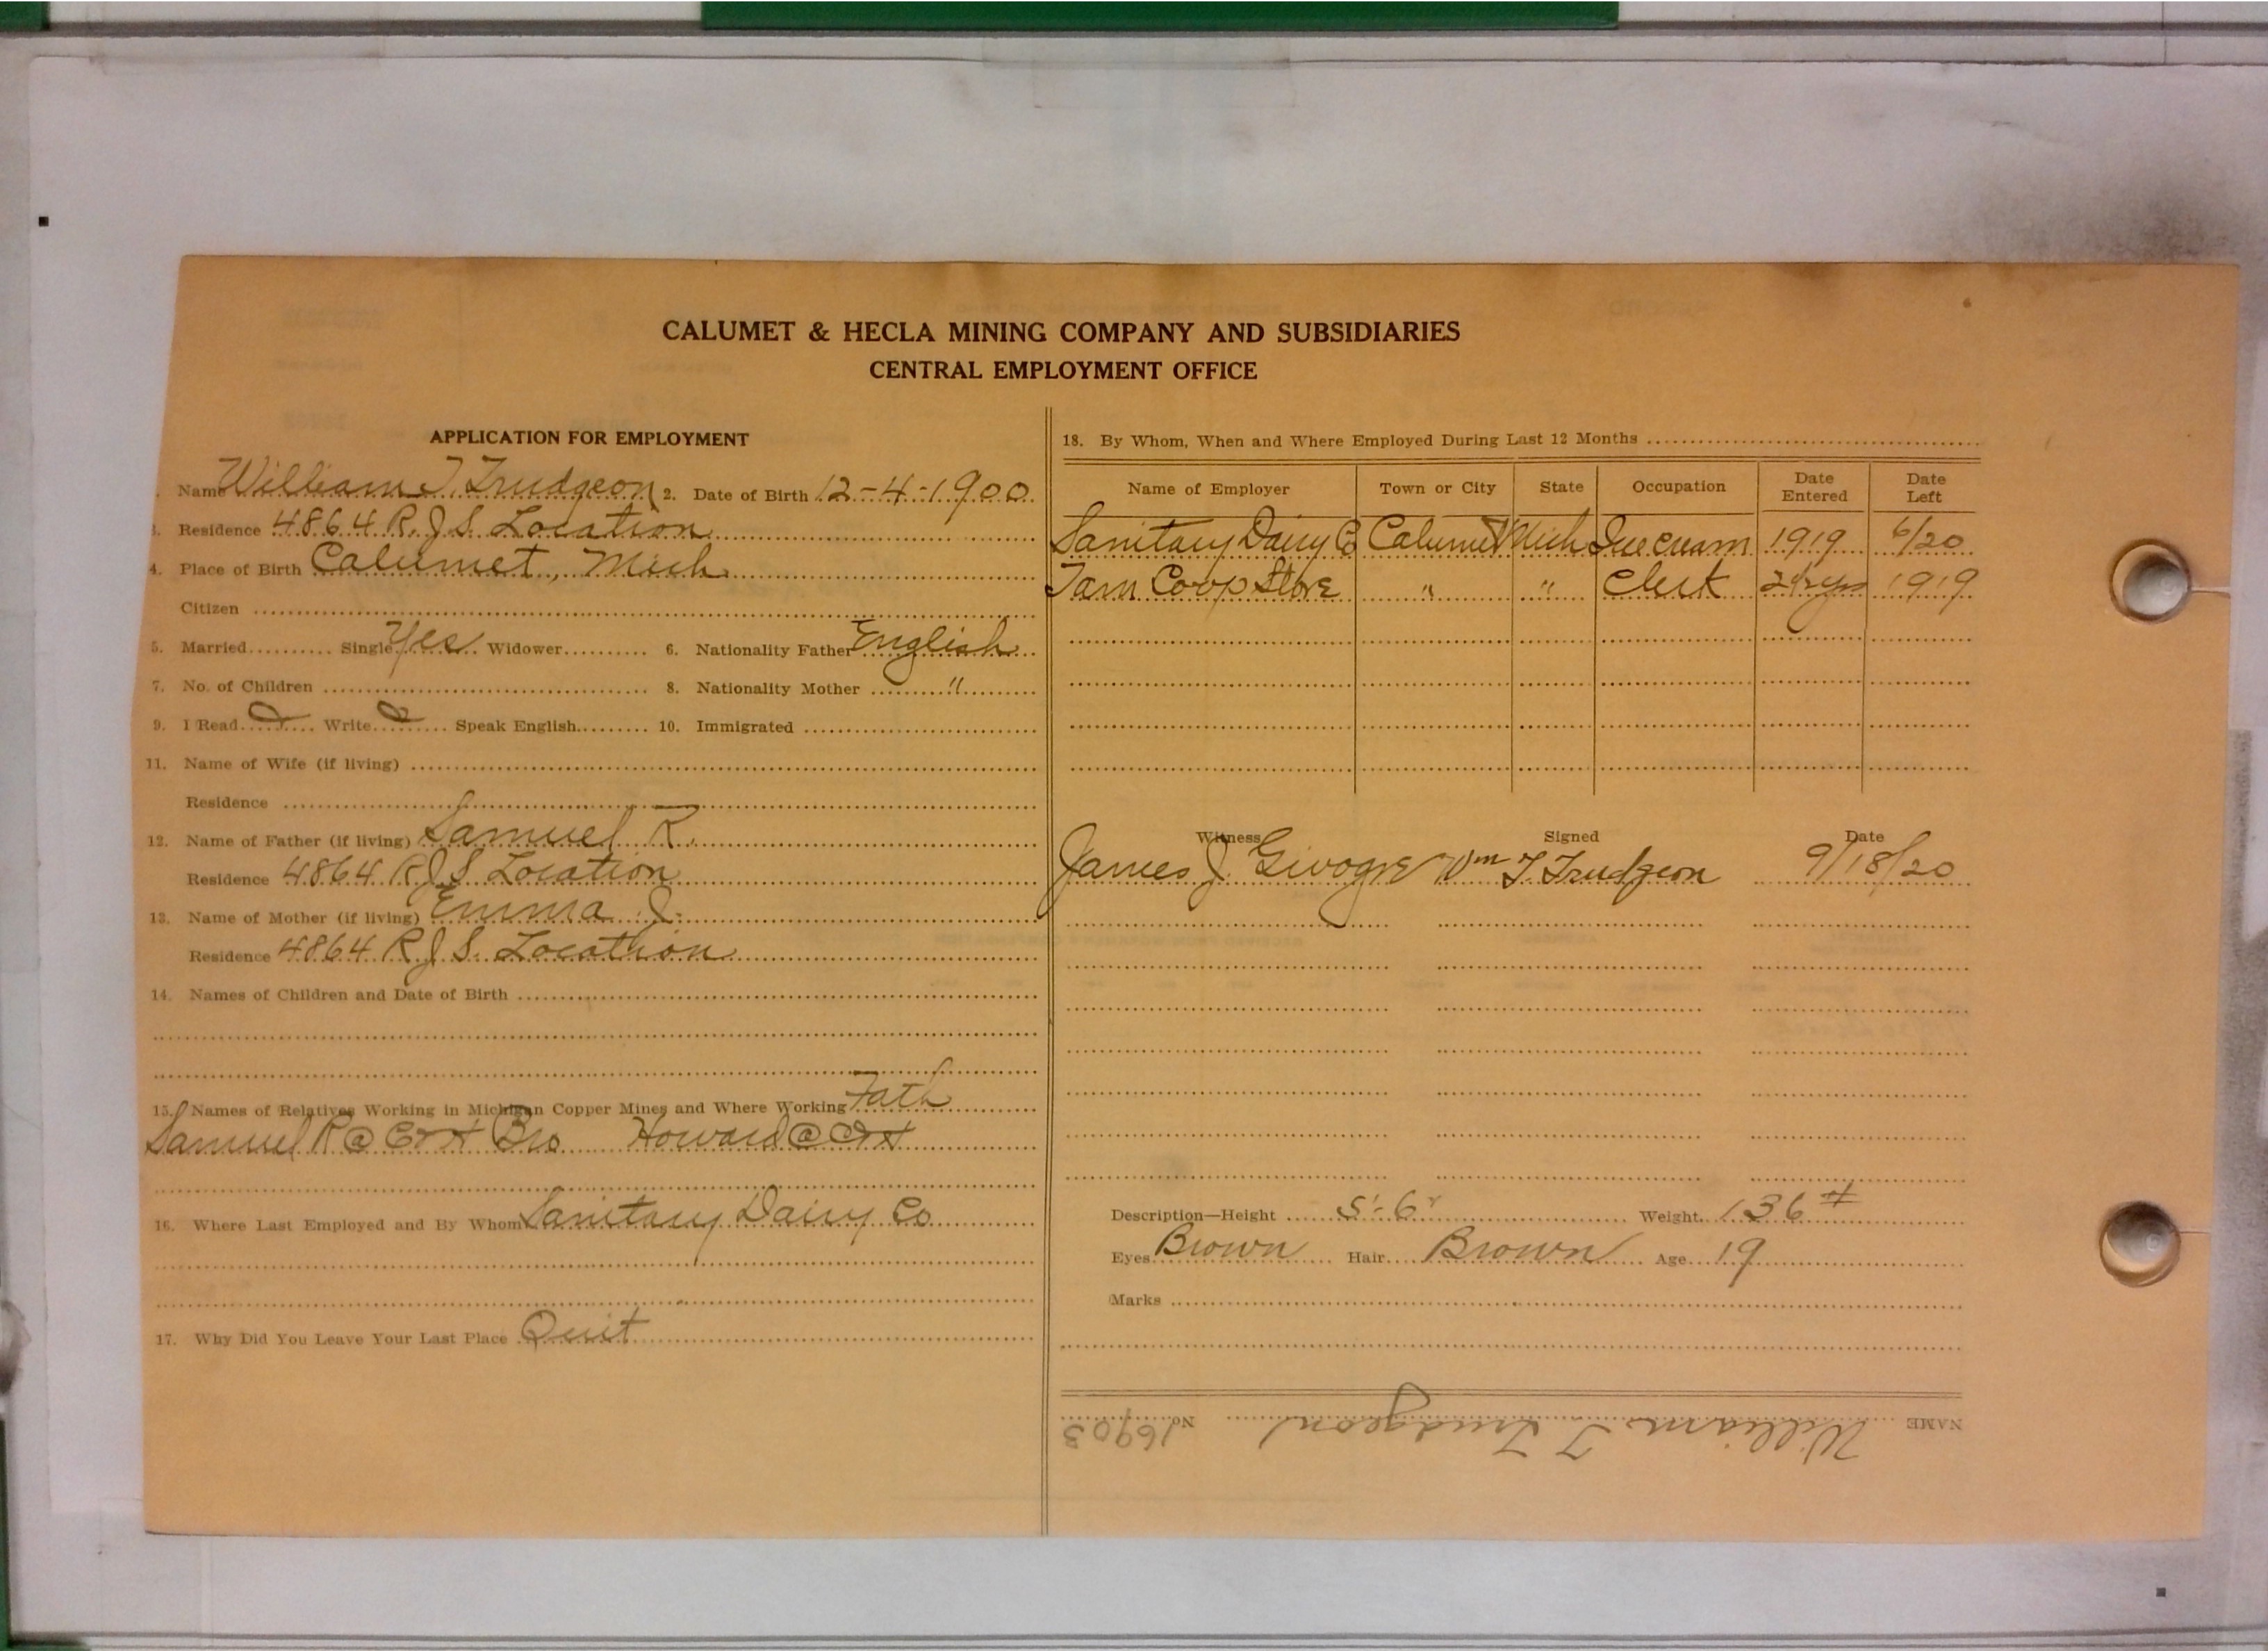 CALUMET & HECLA MINING COMPANY AND SUBSIDIARIES
CENTRAL EMPLOYMENT OFFICE
APPLICATION FOR EMPLOYMENT
Name William T. Trudgeon 2. Date of Birth 12-4-1900
3. Residence 4864 R.J.S. Location
4. Place of Birth Calumet, Mich
Citizen
5. Married Single Yes Widower 6. Nationality Father English
7. No. of Children 8. Nationality Mother "
9. I Read Write Speak English 10. Immigrated
11. Name of Wife (if living)
Residence
12. Name of Father (if living) Samuel R.
Residence 4864 R J S Location
13. Name of Mother (if living) Emma J.
Residence 4864 R J S. Location
14. Names of Children and Date of Birth
15. Names of Relatives Working in Michigan Copper Mines and Where Working Fath
Samuel R @ C+H Bro Howard @ C+H
16. Where Last Employed and By Whom Sanitary Dairy Co
17. Why Did You Leave Your Last Place Quit
18. By Whom, When and Where Employed During Last 12 Months
Name of Employer Town or City State Occupation Date Entered Date Left
Sanitary Dairy Co Calumet Mich Ice cream 1919 6/20
Tam Coop Store " " Clerk yrs 1919
Witness Signed Date
James J. Wm T. Trudgeon 9/18/20
Description—Height 5'-6" Weight 136 #
Eyes Brown Hair Brown Age 19
Marks
NAME William T. Trudgeon No. 16903